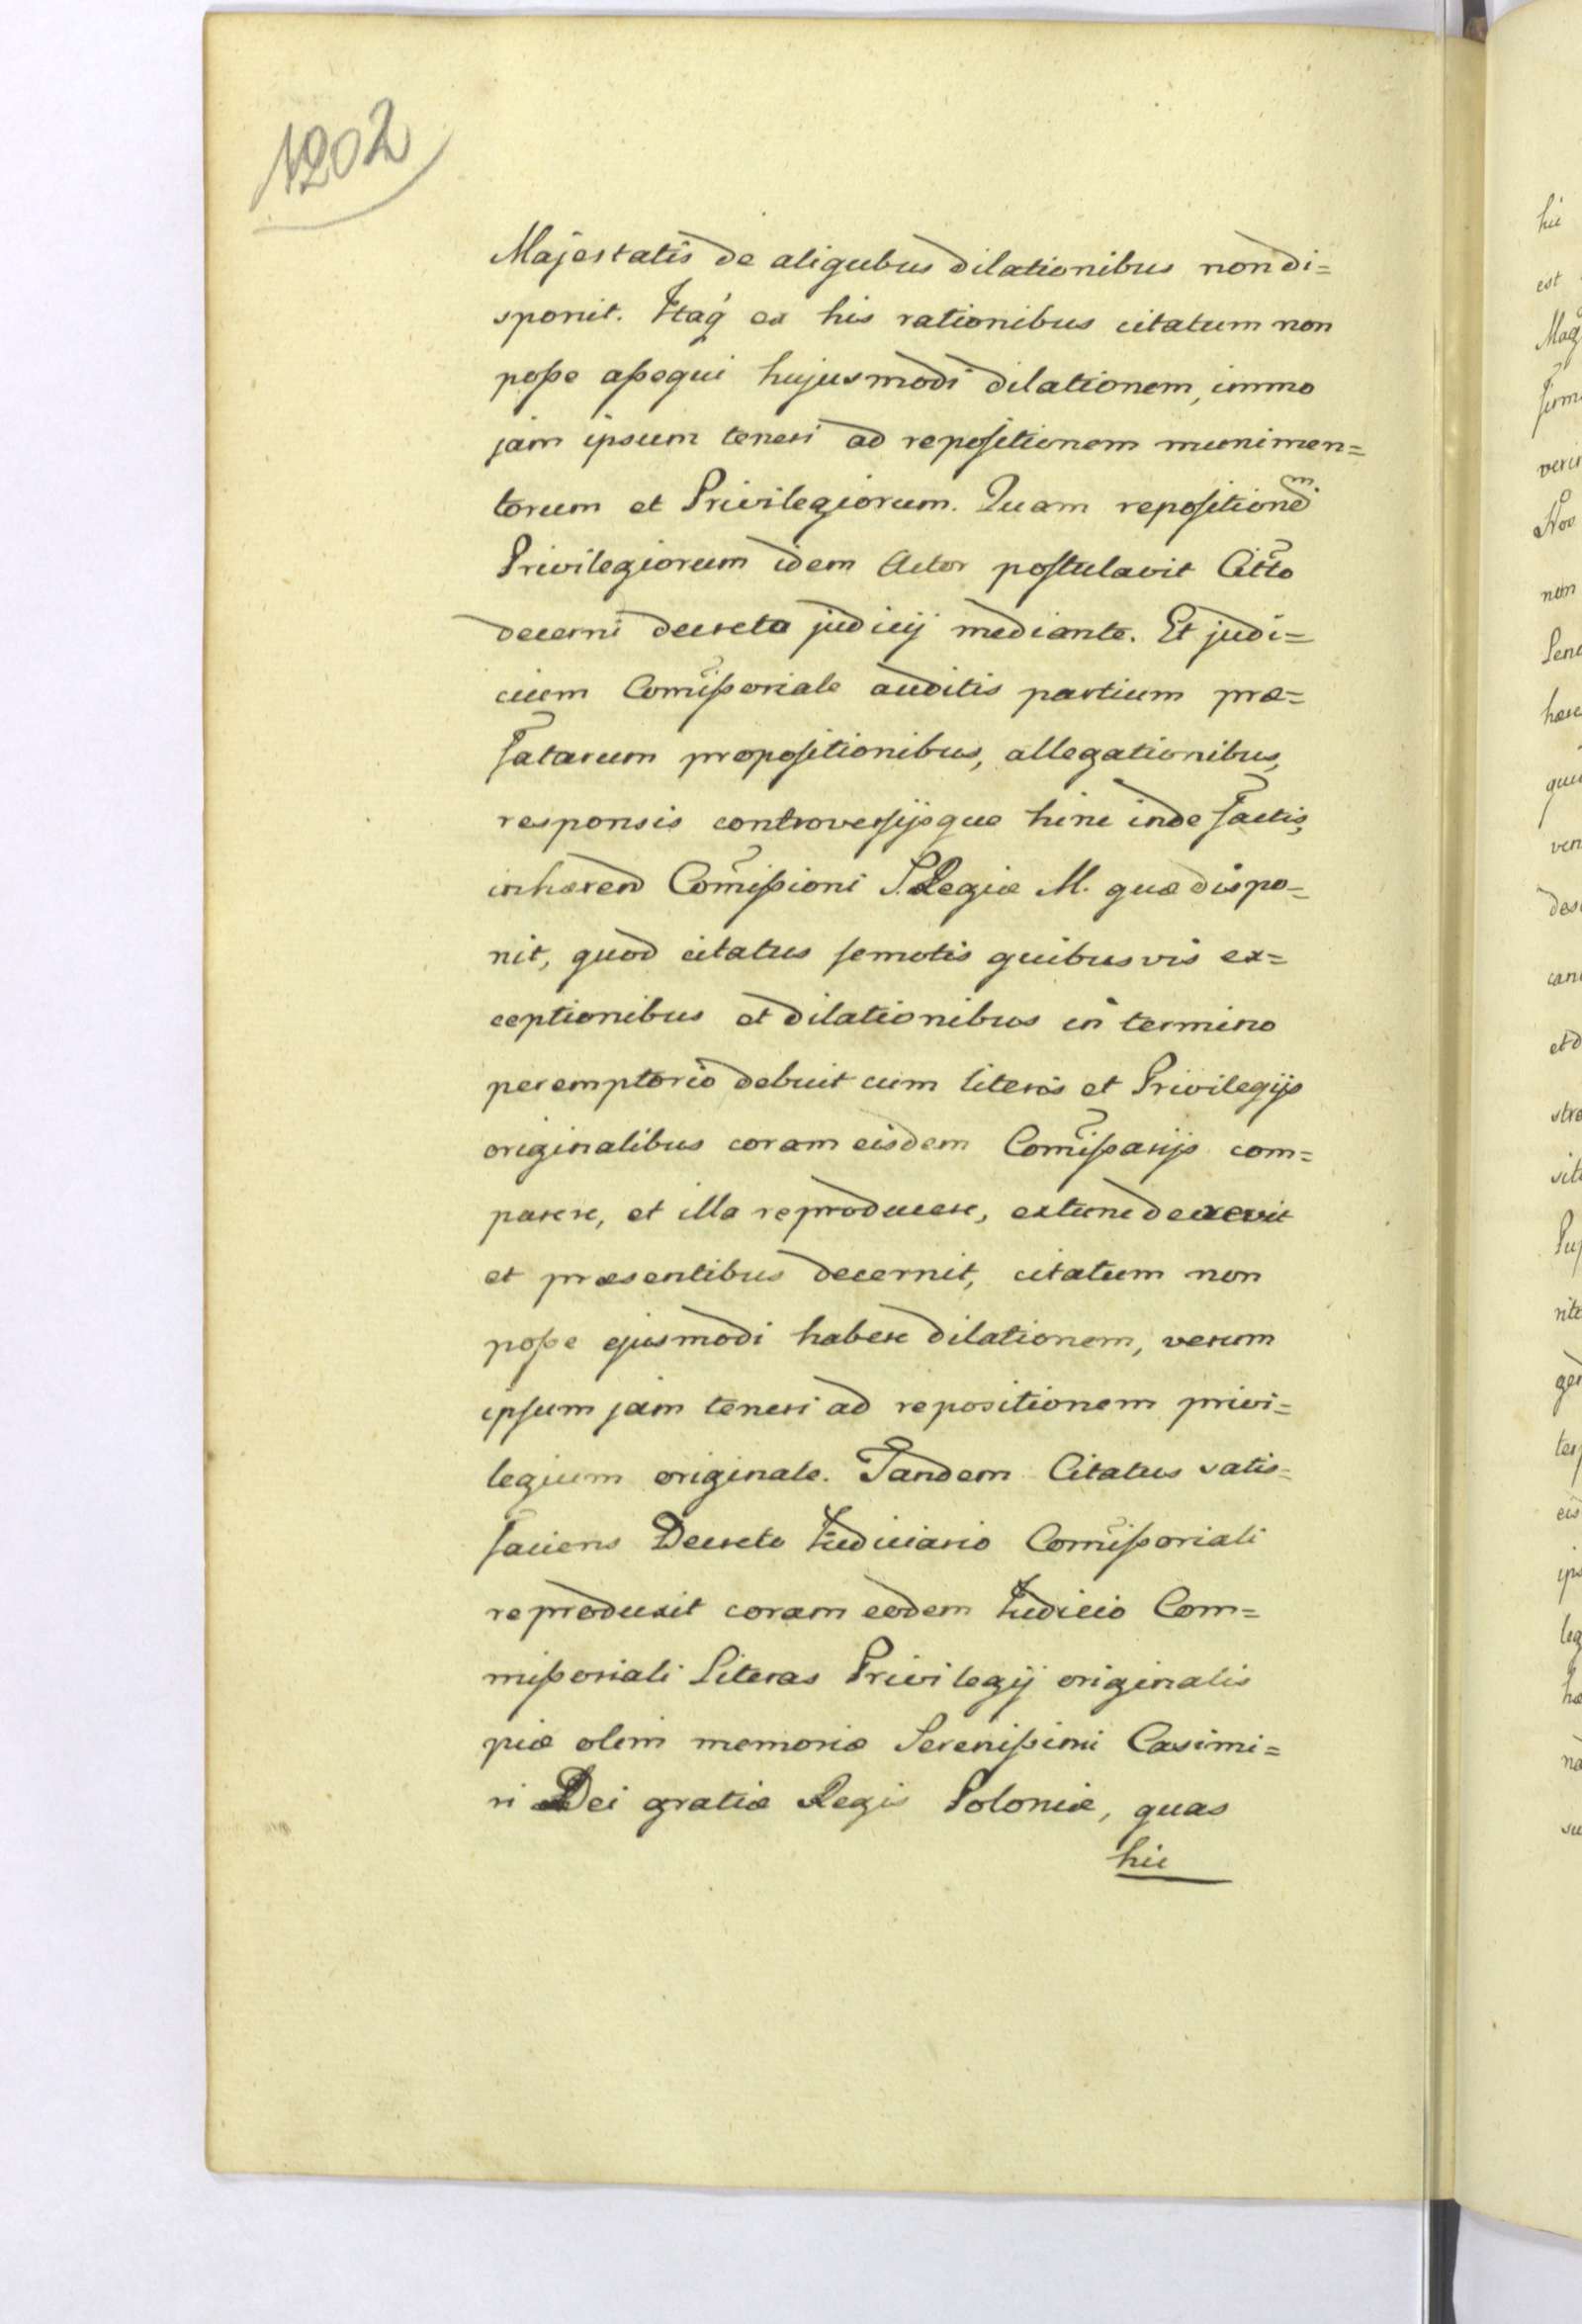 1202
Majestatis de aliqubus dilationibus non di=
sponit. Itaq́ ex his rationibus citatum non
poſse aſsequi hujusmodi dilationem, immo
jam ipsum teneri ad repoſitionem munimen=
torum et Privilegiorum. Quam repoſitionem
Privilegiorum idem Actor poſtulavit Citto
decerni decreto judicij mediante. Et judi=
cium Comiſsoriale auditis partium præ=
fatarum propoſitionibus, allegationibus,
responsis controverſijsque hinc inde factis,
inhærend Comiſsioni S. Regiæ M. quæ dispo=
nit, quod citatus ſemotis quibusvis ex=
ceptionibus et dilationibus in termino
peremptorio debuit cum literis et Privilegijs
originalibus coram eisdem Comiſsarijs com=
parere, et illa reproducere, extunc decrevit
et præsentibus decernit, citatum non
poſse ejusmodi habere dilationem, verum
ipſum jam teneri ad repositionem privi=
legium originale. Tandem Citatus satis=
faciens Decreto Judiciario Comiſsoriali
reproduxit coram eodem Judicio Com=
miſsoriali Literas Privilegij originalis
piæ olim memoriæ Sereniſsimi Casimi=
ri Dei gratiæ Regis Poloniæ, quas
hic